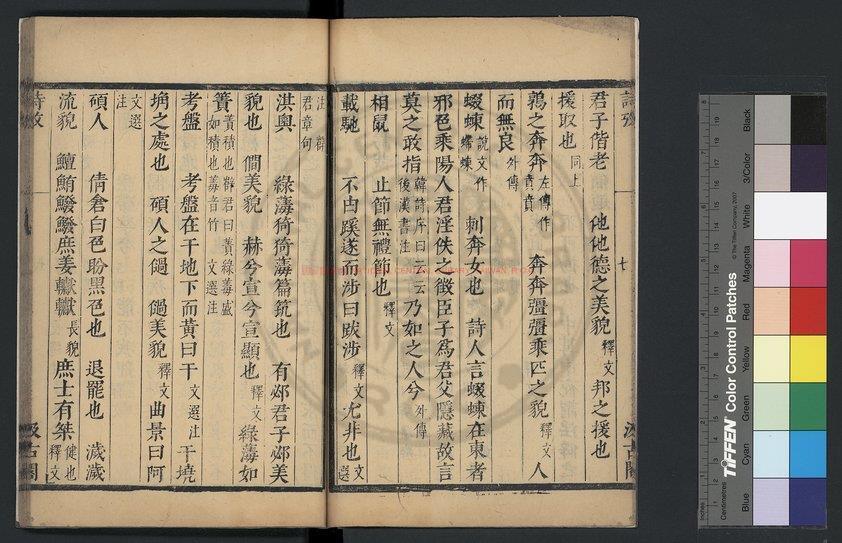 君子偕老　佗佗德之美貌釋文邦之援也
援取也同上
鶉之奔奔左傳作賁賁　奔奔彊彊乘匹之貌釋文人
而無良外傳
蝃蝀說文作螮蝀　刺奔女也　詩人言蝃蝀在東者
邪色乘陽人君淫佚之徵臣子爲君父隱藏故言
莫之敢指韓詩序曰云云後漢書注乃如之人兮外傳
相鼠　止節無禮節也釋文
載馳　不由蹊遂而涉曰跋涉釋文尤非也文選
注
君章句
淇奧　綠薄猗猗薄篇筑也　有邲君子邲美
貌也　僩美貌　赫兮宣兮宣顯也釋文綠薄如
簀　文選注
考盤　考盤在干地下而黃曰干文選注干境
埆之處也　碩人之薖　薖美貌釋文曲景曰阿
文選注
碩人　倩倉白色盼黑色也　退罷也　濊濊
流貌　鱣鮪鱍鱍庶姜轙轙長貌庶士有桀健也釋文
七
汲古閣
TIFFEN Color Control Patches
© The Tiffen Company, 2007
Blue
Cyan
Green
Yellow
Red
Magenta
White
3/Color
Black
Inches
Centimetres